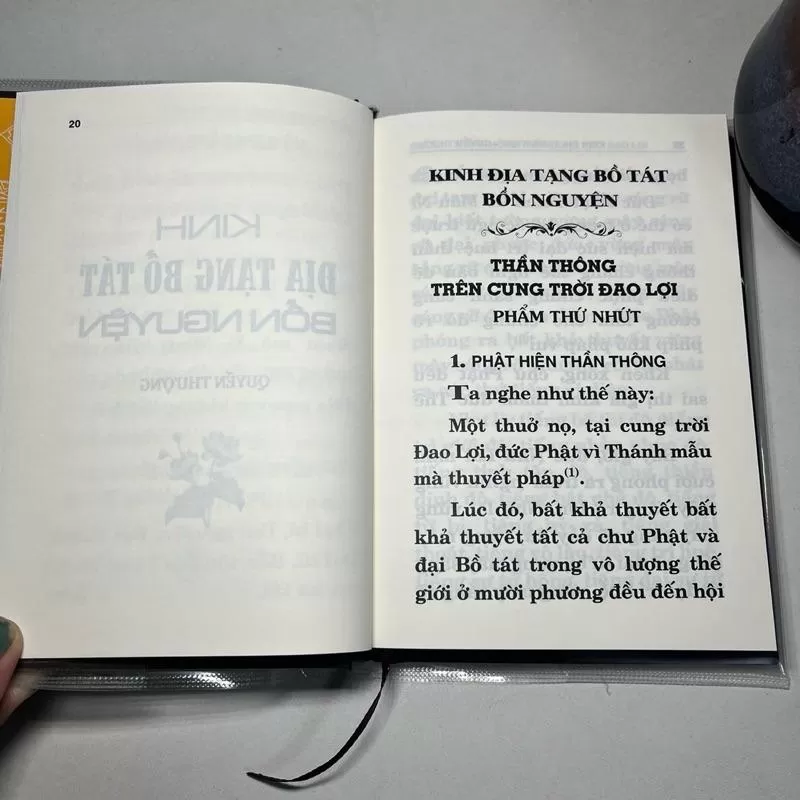 20
KINH
ĐỊA TẠNG BỒ TÁT
BỔN NGUYỆN
QUYỂN THƯỢNG
KINH ĐỊA TẠNG BỒ TÁT
BỔN NGUYỆN
THẦN THÔNG
TRÊN CUNG TRỜI ĐAO LỢI
PHẨM THỨ NHỨT
1. PHẬT HIỆN THẦN THÔNG
Ta nghe như thế này:
Một thuở nọ, tại cung trời
Đao Lợi, đức Phật vì Thánh mẫu
mà thuyết pháp(1).
Lúc đó, bất khả thuyết bất
khả thuyết tất cả chư Phật và
đại Bồ tát trong vô lượng thế
giới ở mười phương đều đến hội